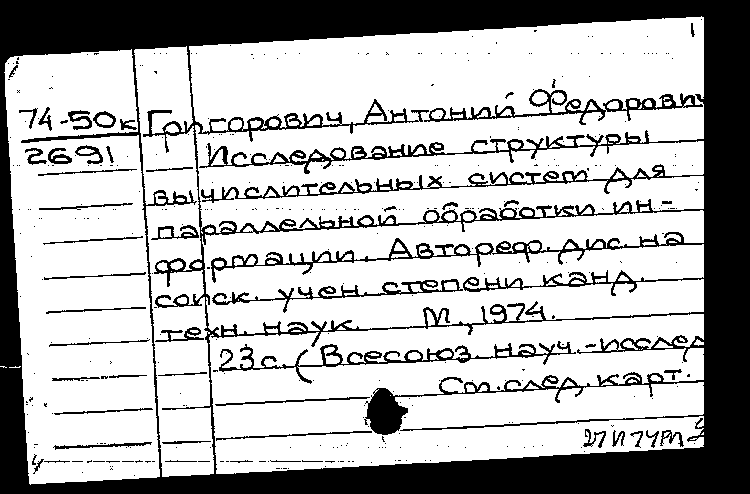 74-50к Григорович, Антоний Федорович
2691 Исследование структуры
вычислительных систем для
параллельной обработки ин-
формации. Автореф. дис. на
соиск. учен. степени канд.
техн. наук. М., 1974.
23с. (Всесоюз. науч.-исслед
См. след. карт.